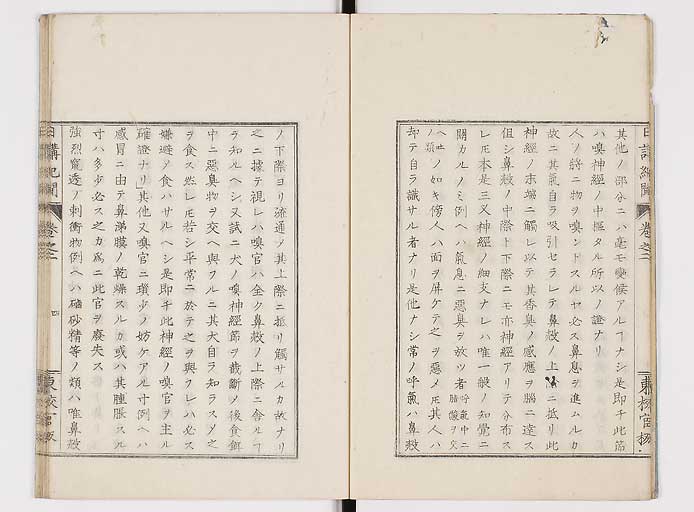 其他ノ部分ニハ毫モ變候アルヿナシ是即チ此節
ハ嗅神經ノ中樞タル所以ノ證ナリ
人ノ將ニ物ヲ嗅ントスルヤ必ス鼻息ヲ進ムルカ
故ニ其氣自ラ吸引セラレテ鼻殻ノ上 ニ抵リ此
神經ノ末端ニ觸レ以テ其香臭ノ感應ヲ腦ニ達ス
但シ鼻殻ノ中際ト下際ニモ亦神經アリテ分布ス
レ𪜈本是三叉神經ノ細支ナレハ唯一般ノ知覺ニ
關カルノミ例ヘハ氣息ニ惡臭ヲ放ツ者呼氣中ニ 酸ヲ交
ヘ ノ類ノ如キ傍人ハ面ヲ屏ケテ之ヲ惡メ𪜈其人ハ
却テ自ラ識サル者ナリ是他ナシ常ノ呼氣ハ鼻殻
日講紀聞 卷之二
ノ下際ヨリ流通ノ其上際ニ抵リ觸サルカ故ナリ
之ニ據テ視レハ嗅官ハ全ク鼻殻ノ上際ニ舎ルヿ
ヲ知ルヘシ又試ニ犬ノ嗅神經節ヲ截斷ノ後食餌
中ニ惡臭物ヲ交ヘ與フルニ其犬自ラ知ラスノ之
ヲ食ス然レ𪜈若シ平常ニ於テ之ヲ與クレハ必ス
嫌避ノ食ハサルヘシ是即チ此神經ノ嗅官ヲ主ル
確證ナリ」其他又嗅官ニ瑣少ノ妨ケアル寸例ヘハ
感冒ニ由テ鼻涕膜ノ乾燥スルカ或ハ其腫脹スル
寸ハ多少必ス之カ爲ニ此官ヲ廢失ス
強烈竄透ノ刺衝物例ヘハ磠砂精等ノ類ハ唯鼻殻
日講紀聞 卷之二 四